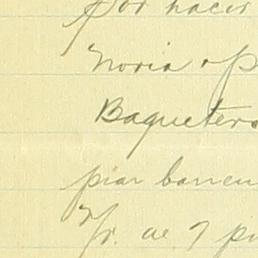 por hacer
Noria o p
Baquetero
piar barren
Yr. de 7 pi